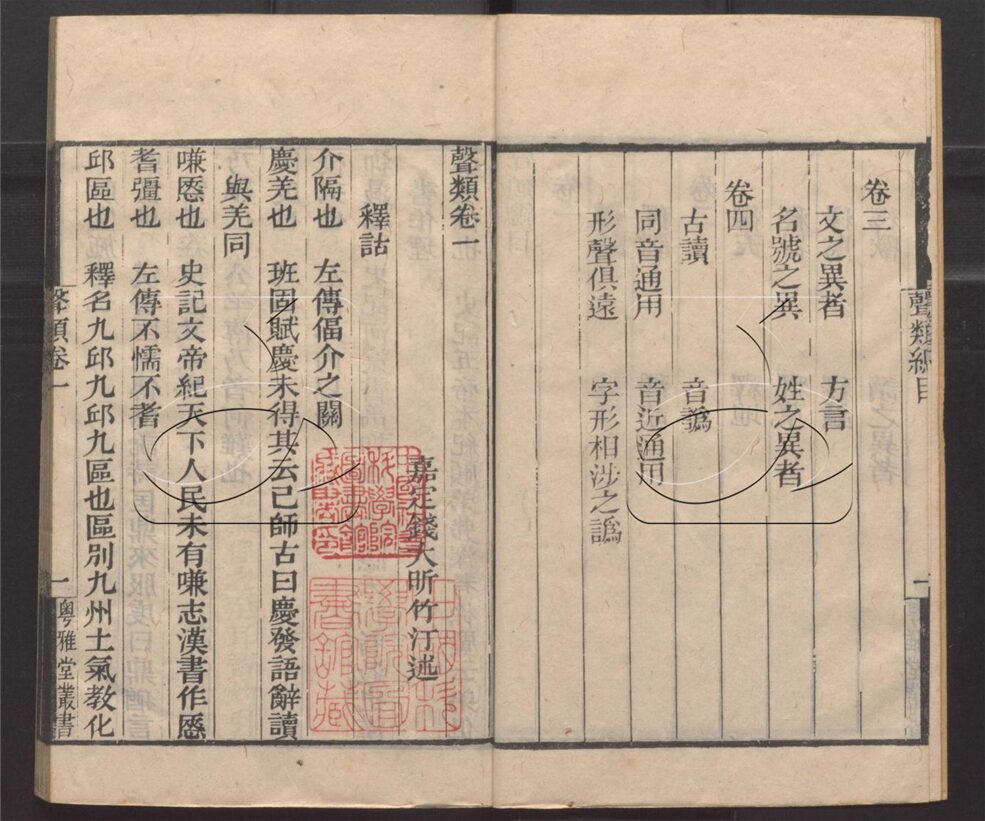 卷三
文之異者　方言
名號之異　姓之異者
卷四
古讀　音譌
同音通用　音近通用
形聲俱遠　字形相涉之譌
聲類卷一
嘉定錢大昕竹汀述
釋詁
介隔也　左傳偪介之關
慶羌也　班固賦慶未得其云已師古曰慶發語辭讀
與羌同
嗛慝也　史記文帝紀天下人民未有嗛志漢書作慝
耆彊也　左傳不懦不耆
邱區也　釋名九邱九邱九區也區別九州土氣教化
聲類卷一
一
粵雅堂叢書